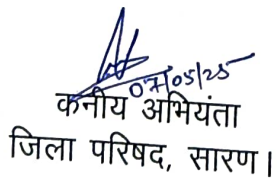 07/05/25
कनीय अभियंता
जिला परिषद, सारण।